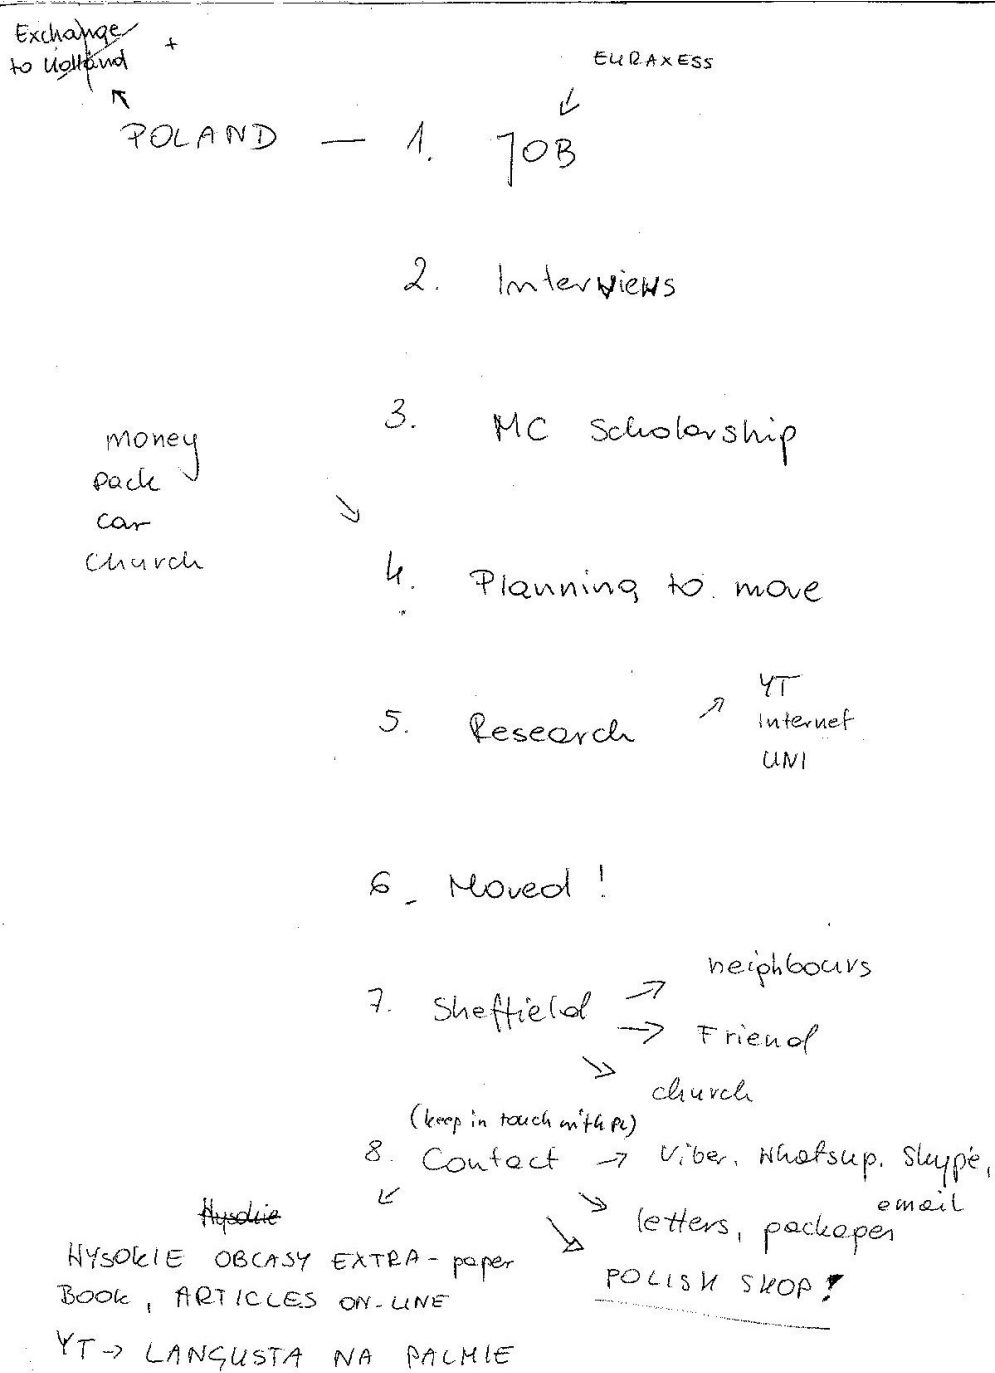 Exchange
to Holland
+
EURAXESS
POLAND — 1. JOB
2. Interviews
3. MC Scholarship
money
pack
car
Church
4. Planning to move
5. Research
YT
Internet
UNI
6_ Moved !
7. Sheffield
neighbours
Friend
church
(keep in touch with PL)
8. Contact → Viber, Whatsup, Skype,
email
letters, packages
POLISH SHOP!
Wysokie
WYSOKIE OBCASY EXTRA - paper
BOOK, ARTICLES ON-LINE
YT → LANGUSTA NA PALMIE